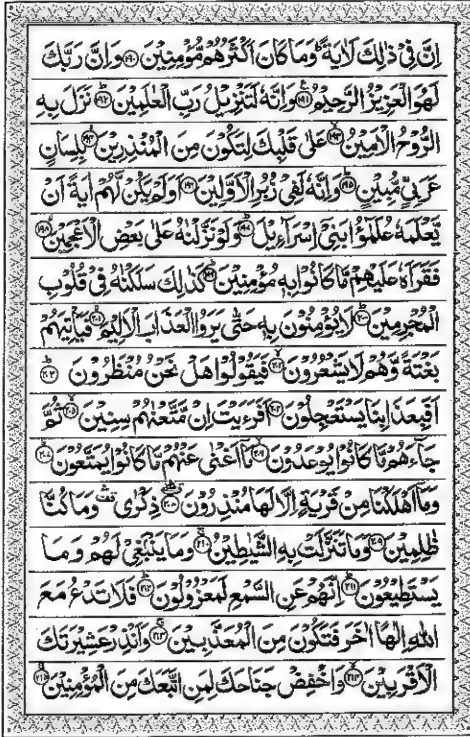 اِنَّ فِیْ ذٰلِكَ لَاٰیَةً ؕ وَمَا كَانَ اَكْثَرُهُمْ مُّؤْمِنِیْنَ ﴿۱۹۰﴾ وَاِنَّ رَبَّكَ
لَهُوَ الْعَزِیْزُ الرَّحِیْمُ ﴿۱۹۱﴾ وَاِنَّهٗ لَتَنْزِیْلُ رَبِّ الْعٰلَمِیْنَ ﴿۱۹۲﴾ نَزَلَ بِهِ
الرُّوْحُ الْاَمِیْنُ ﴿۱۹۳﴾ عَلٰی قَلْبِكَ لِتَكُوْنَ مِنَ الْمُنْذِرِیْنَ ﴿۱۹۴﴾ بِلِسَانٍ
عَرَبِیٍّ مُّبِیْنٍ ﴿۱۹۵﴾ وَاِنَّهٗ لَفِیْ زُبُرِ الْاَوَّلِیْنَ ﴿۱۹۶﴾ اَوَلَمْ یَكُنْ لَّهُمْ اٰیَةً اَنْ
یَّعْلَمَهٗ عُلَمٰٓؤُا بَنِیْۤ اِسْرَآءِیْلَ ﴿۱۹۷﴾ وَلَوْ نَزَّلْنٰهُ عَلٰی بَعْضِ الْاَعْجَمِیْنَ ﴿۱۹۸﴾
فَقَرَاَهٗ عَلَیْهِمْ مَّا كَانُوْا بِهٖ مُؤْمِنِیْنَ ﴿۱۹۹﴾ كَذٰلِكَ سَلَكْنٰهُ فِیْ قُلُوْبِ
الْمُجْرِمِیْنَ ﴿۲۰۰﴾ لَا یُؤْمِنُوْنَ بِهٖ حَتّٰی یَرَوُا الْعَذَابَ الْاَلِیْمَ ﴿۲۰۱﴾ فَیَاْتِیَهُمْ
بَغْتَةً وَّهُمْ لَا یَشْعُرُوْنَ ﴿۲۰۲﴾ فَیَقُوْلُوْا هَلْ نَحْنُ مُنْظَرُوْنَ ﴿۲۰۳﴾
اَفَبِعَذَابِنَا یَسْتَعْجِلُوْنَ ﴿۲۰۴﴾ اَفَرَءَیْتَ اِنْ مَّتَّعْنٰهُمْ سِنِیْنَ ﴿۲۰۵﴾ ثُمَّ
جَآءَهُمْ مَّا كَانُوْا یُوْعَدُوْنَ ﴿۲۰۶﴾ مَاۤ اَغْنٰی عَنْهُمْ مَّا كَانُوْا یُمَتَّعُوْنَ ﴿۲۰۷﴾
وَمَاۤ اَهْلَكْنَا مِنْ قَرْیَةٍ اِلَّا لَهَا مُنْذِرُوْنَ ﴿۲۰۸﴾ ذِكْرٰی ۛ وَمَا كُنَّا
ظٰلِمِیْنَ ﴿۲۰۹﴾ وَمَا تَنَزَّلَتْ بِهِ الشَّیٰطِیْنُ ﴿۲۱۰﴾ وَمَا یَنْۢبَغِیْ لَهُمْ وَمَا
یَسْتَطِیْعُوْنَ ﴿۲۱۱﴾ اِنَّهُمْ عَنِ السَّمْعِ لَمَعْزُوْلُوْنَ ﴿۲۱۲﴾ فَلَا تَدْعُ مَعَ
اللّٰهِ اِلٰهًا اٰخَرَ فَتَكُوْنَ مِنَ الْمُعَذَّبِیْنَ ﴿۲۱۳﴾ وَاَنْذِرْ عَشِیْرَتَكَ
الْاَقْرَبِیْنَ ﴿۲۱۴﴾ وَاخْفِضْ جَنَاحَكَ لِمَنِ اتَّبَعَكَ مِنَ الْمُؤْمِنِیْنَ ﴿۲۱۵﴾